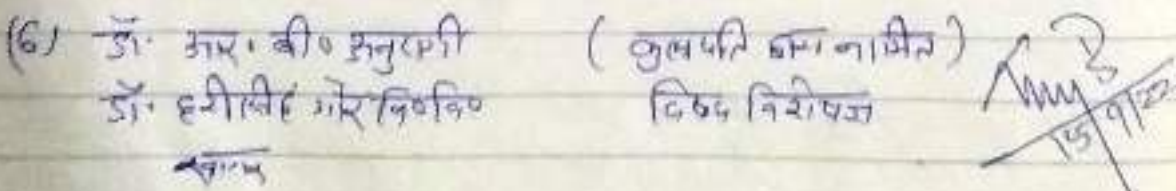 (6) डॉ. आर. बी० अनुरागी (कुलपति द्वारा नामित)
डॉ. हरीसिंह गौर वि०वि० विषय विशेषज्ञ
सागर
15/9/22